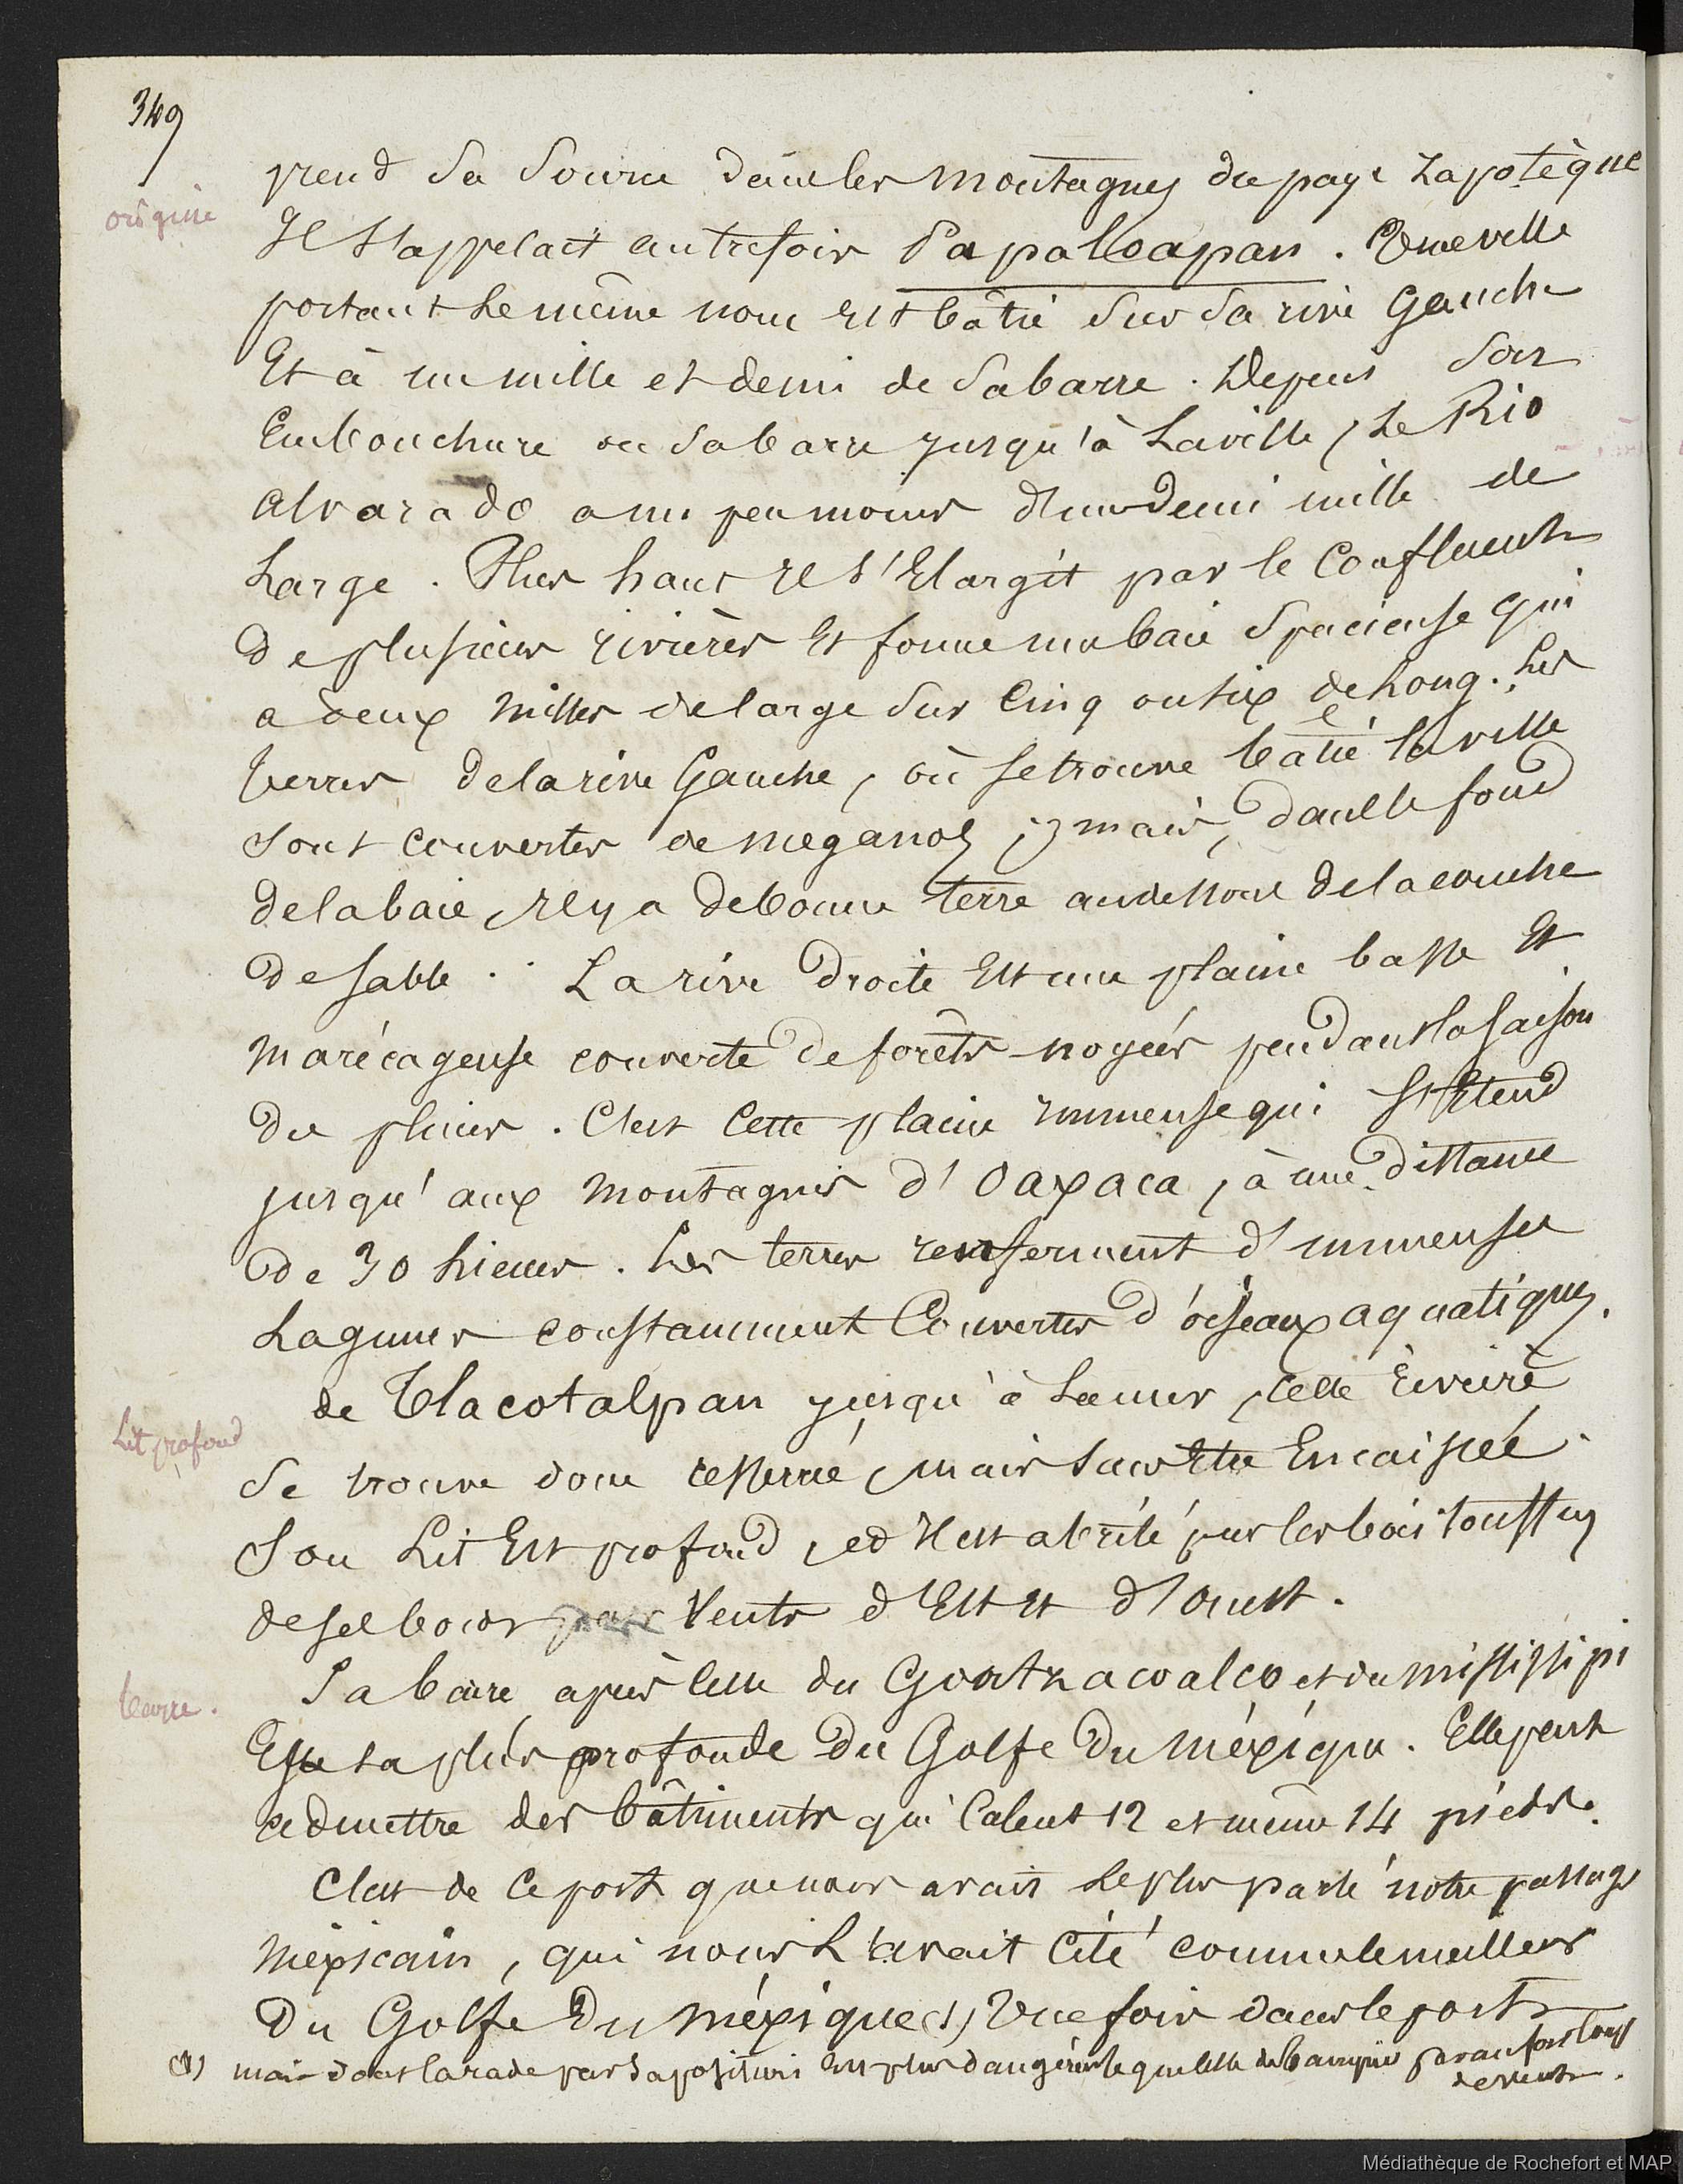 349
origine
prend sa source dans les montagnes du pays Zapotèque
Il s'appelait autrefois Papaloapan. Une ville
portant le même nom est bâtie sur sa rive gauche
Et à un mille et demi de sa barre. Depuis son
Embouchure ou sa barre jusqu'à la ville, le Rio
alvarado a un peu moins d'un demi mille de
large. Plus haut il s'élargit par le confluent
de plusieurs rivières et forme une baie spacieuse qui
a deux milles de large sur cinq ou six de long. Les
terres de la rive gauche, où se trouve bâtie la ville
sont couvertes de meganos ; mais, dans le fond
de la baie, il y a de bonne terre au dessous de la couche
de sable. La rive droite est une plaine basse et
marécageuse couverte de forêts noyées pendant la saison
du pluies. C'est cette plaine immense qui s'étend
jusqu'aux montagnes d'Oaxaca, à une distance
de 30 lieues. Les terres renferment d'immenses
lagunes constamment couvertes d'oiseaux aquatiques.
de Tlacotalpan jusqu'à la mer, cette rivière
Lit profond
se trouve donc resserrée, mais sans être Encaissée.
Son Lit Est profond, et il est abrité par les bois touffus
de ses bords des Vents d'Est et d'ouest.
barre.
Sa barre, après celle du Goatzacoalco et du mississipi
Est la plus profonde du Golfe du méxique. Elle peut
admettre des bâtiments qui calent 12 et même 14 pieds.
C'est de ce port que nous avait le plus parlé notre passager
méxicain, qui nous l'avait cité comme le meilleur
du Golfe du méxique (1) Une fois dans le port
(1) mais dont la rade par sa position est plus dangereuse que celle de par un fort coup
de vent.
Médiathèque de Rochefort et MAP